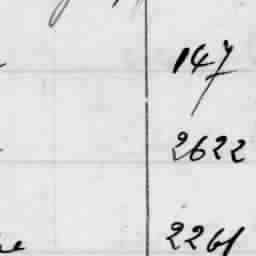 147
2622
2261